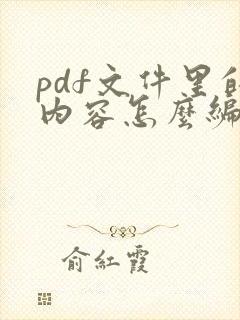 pdf文件里的
内容怎麽编
俞紅霞